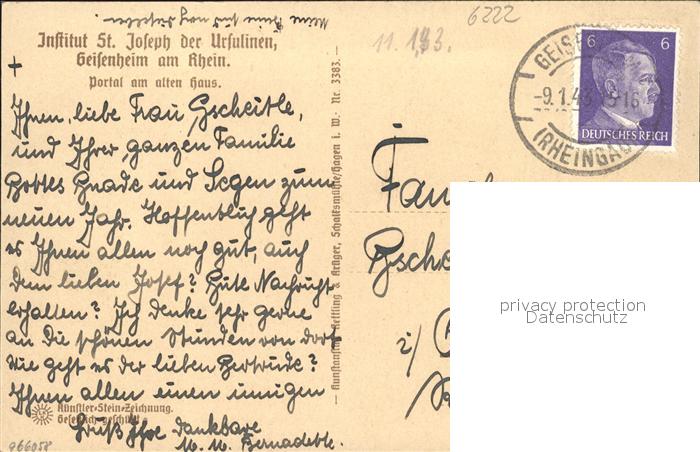 6222
11.1.43.
Institut St. Joseph der Ursulinen,
Geisenheim am Rhein.
Portal am alten Haus.
+
Ihnen, liebe Frau Gscheitle,
und Ihrer ganzen Familie
Gottes Gnade und Segen zum
neuen Jahr. Hoffentlich geht
es Ihnen allen noch gut, auch
dem lieben Josef? Gute Nachricht
erhalten? Ich denke sehr gerne
an die schönen Stunden von dort
Wie geht es der lieben Gertrude?
Ihnen allen einen innigen
Gruß Ihre dankbare
M. M. Bernadette.
Künstler-Stein-Zeichnung.
Gesetzlich geschützt
966058
Kunstanstalt Kettling & Krüger, Schalksmühle/Hagen i. W. Nr. 3383.
GEISE
-9.1.43
-16
(RHEINGAU)
6 6
DEUTSCHES REICH
Fam
Gsche
i/
privacy protection
Datenschutz